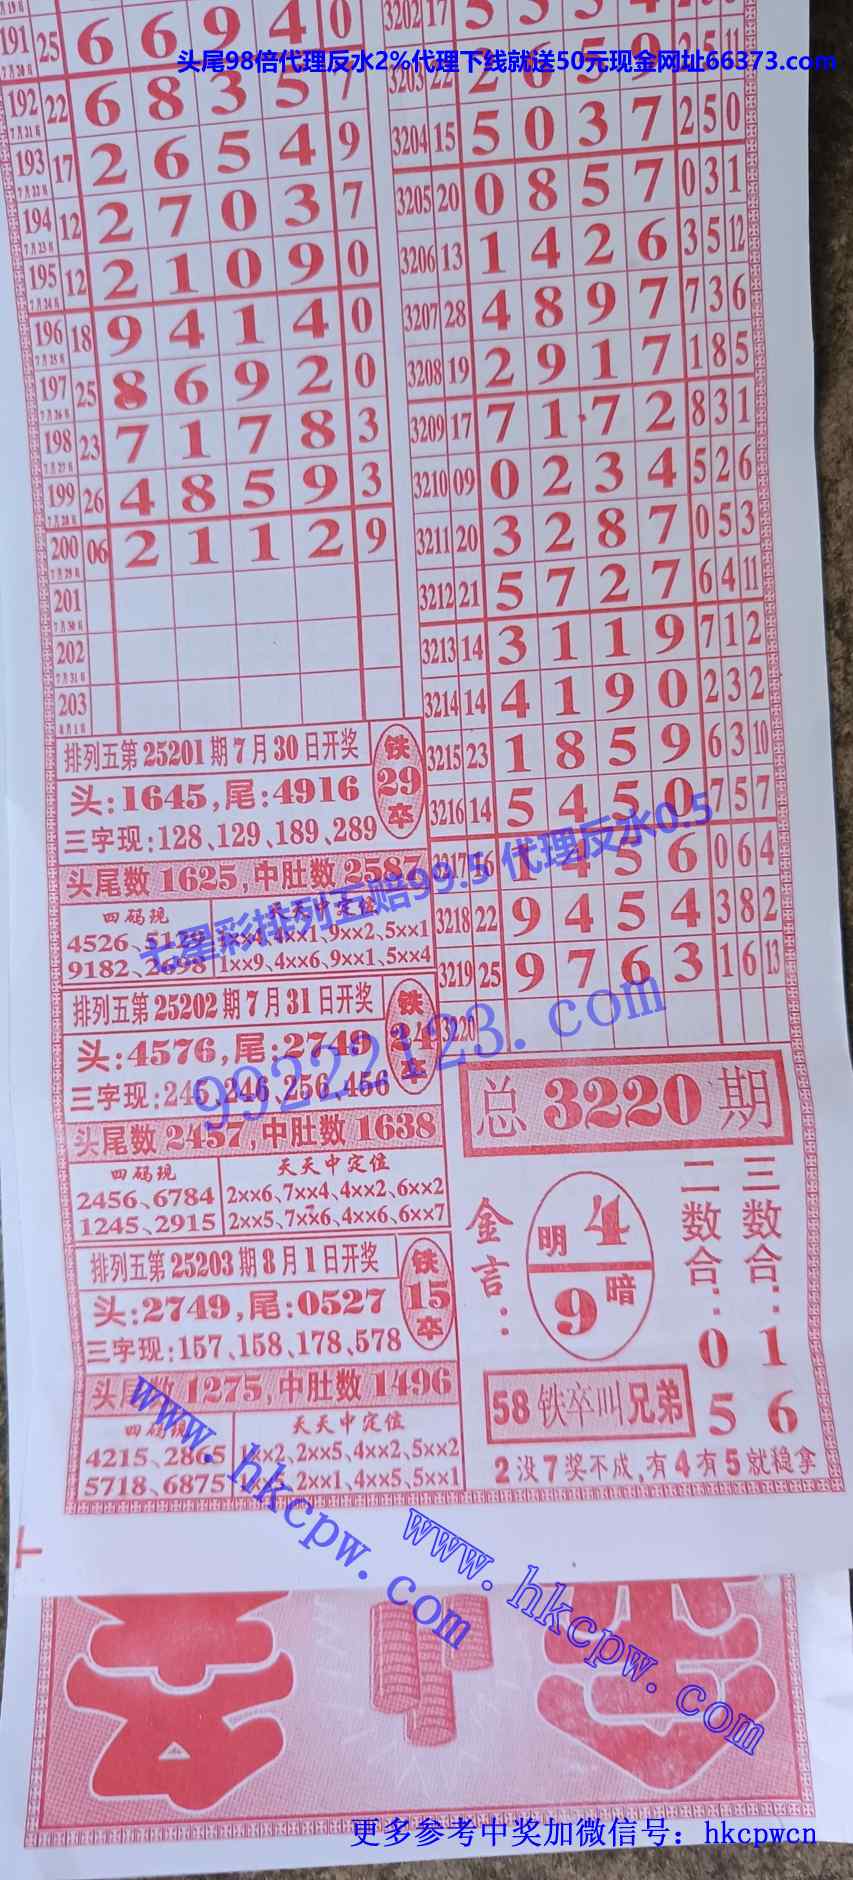 头尾98倍代理反水2%代理下线就送50元现金网址66373.com
191 25 6 6 9 4 0
192 22 6 8 3 5 7
7月21日
193 17 2 6 5 4 9
7月22日
194 12 2 7 0 3 7
7月23日
195 12 2 1 0 9 0
7月24日
196 18 9 4 1 4 0
7月25日
197 25 8 6 9 2 0
7月26日
198 23 7 1 7 8 3
7月27日
199 26 4 8 5 9 3
7月28日
200 06 2 1 1 2 9
7月29日
201
7月30日
202
7月31日
203
8月1日
排列五第25201期7月30日开奖
头:1645,尾:4916
三字现:128、129、189、289
铁
29
卒
头尾数1625,中肚数2587
四码现
9182、2698
天天中定位
1××9、4××6、9××1、5××4
排列五第25202期7月31日开奖
头:4576,尾:2749
三字现:245、246、256、456
铁
24
卒
头尾数2457,中肚数1638
四码现
2456、6784
1245、2915
天天中定位
2××6、7××4、4××2、6××2
2××5、7××6、4××6、6××7
排列五第25203期8月1日开奖
头:2749,尾:0527
三字现:157、158、178、578
铁
15
卒
头尾数1275,中肚数1496
四码现
4215、2865
5718、6875
天天中定位
1××2、2××5、4××2、5××2
2××1、4××5、5××1
3202 17
3203 22 2 6 5 9 3 5 11
3204 15 5 0 3 7 2 5 0
3205 20 0 8 5 7 0 3 1
3206 13 1 4 2 6 3 5 12
3207 28 4 8 9 7 7 3 6
3208 19 2 9 1 7 1 8 5
3209 17 7 1 7 2 8 3 1
3210 09 0 2 3 4 5 2 6
3211 20 3 2 8 7 0 5 3
3212 21 5 7 2 7 6 4 11
3213 14 3 1 1 9 7 1 2
3214 14 4 1 9 0 2 3 2
3215 23 1 8 5 9 6 3 10
3216 14 5 4 5 0 7 5 7
3217 16 1 4 5 6 0 6 4
3218 22 9 4 5 4 3 8 2
3219 25 9 7 6 3 1 6 13
3220
总3220期
金言:
明4
9暗
二数合:05
三数合:16
58铁卒叫兄弟
2没7奖不成,有4有5就稳拿
七星彩排列五赔99.5 代理反水0.5
99222123.com
www.hkcpw.com
www.hkcpw.com
更多参考中奖加微信号：hkcpwcn